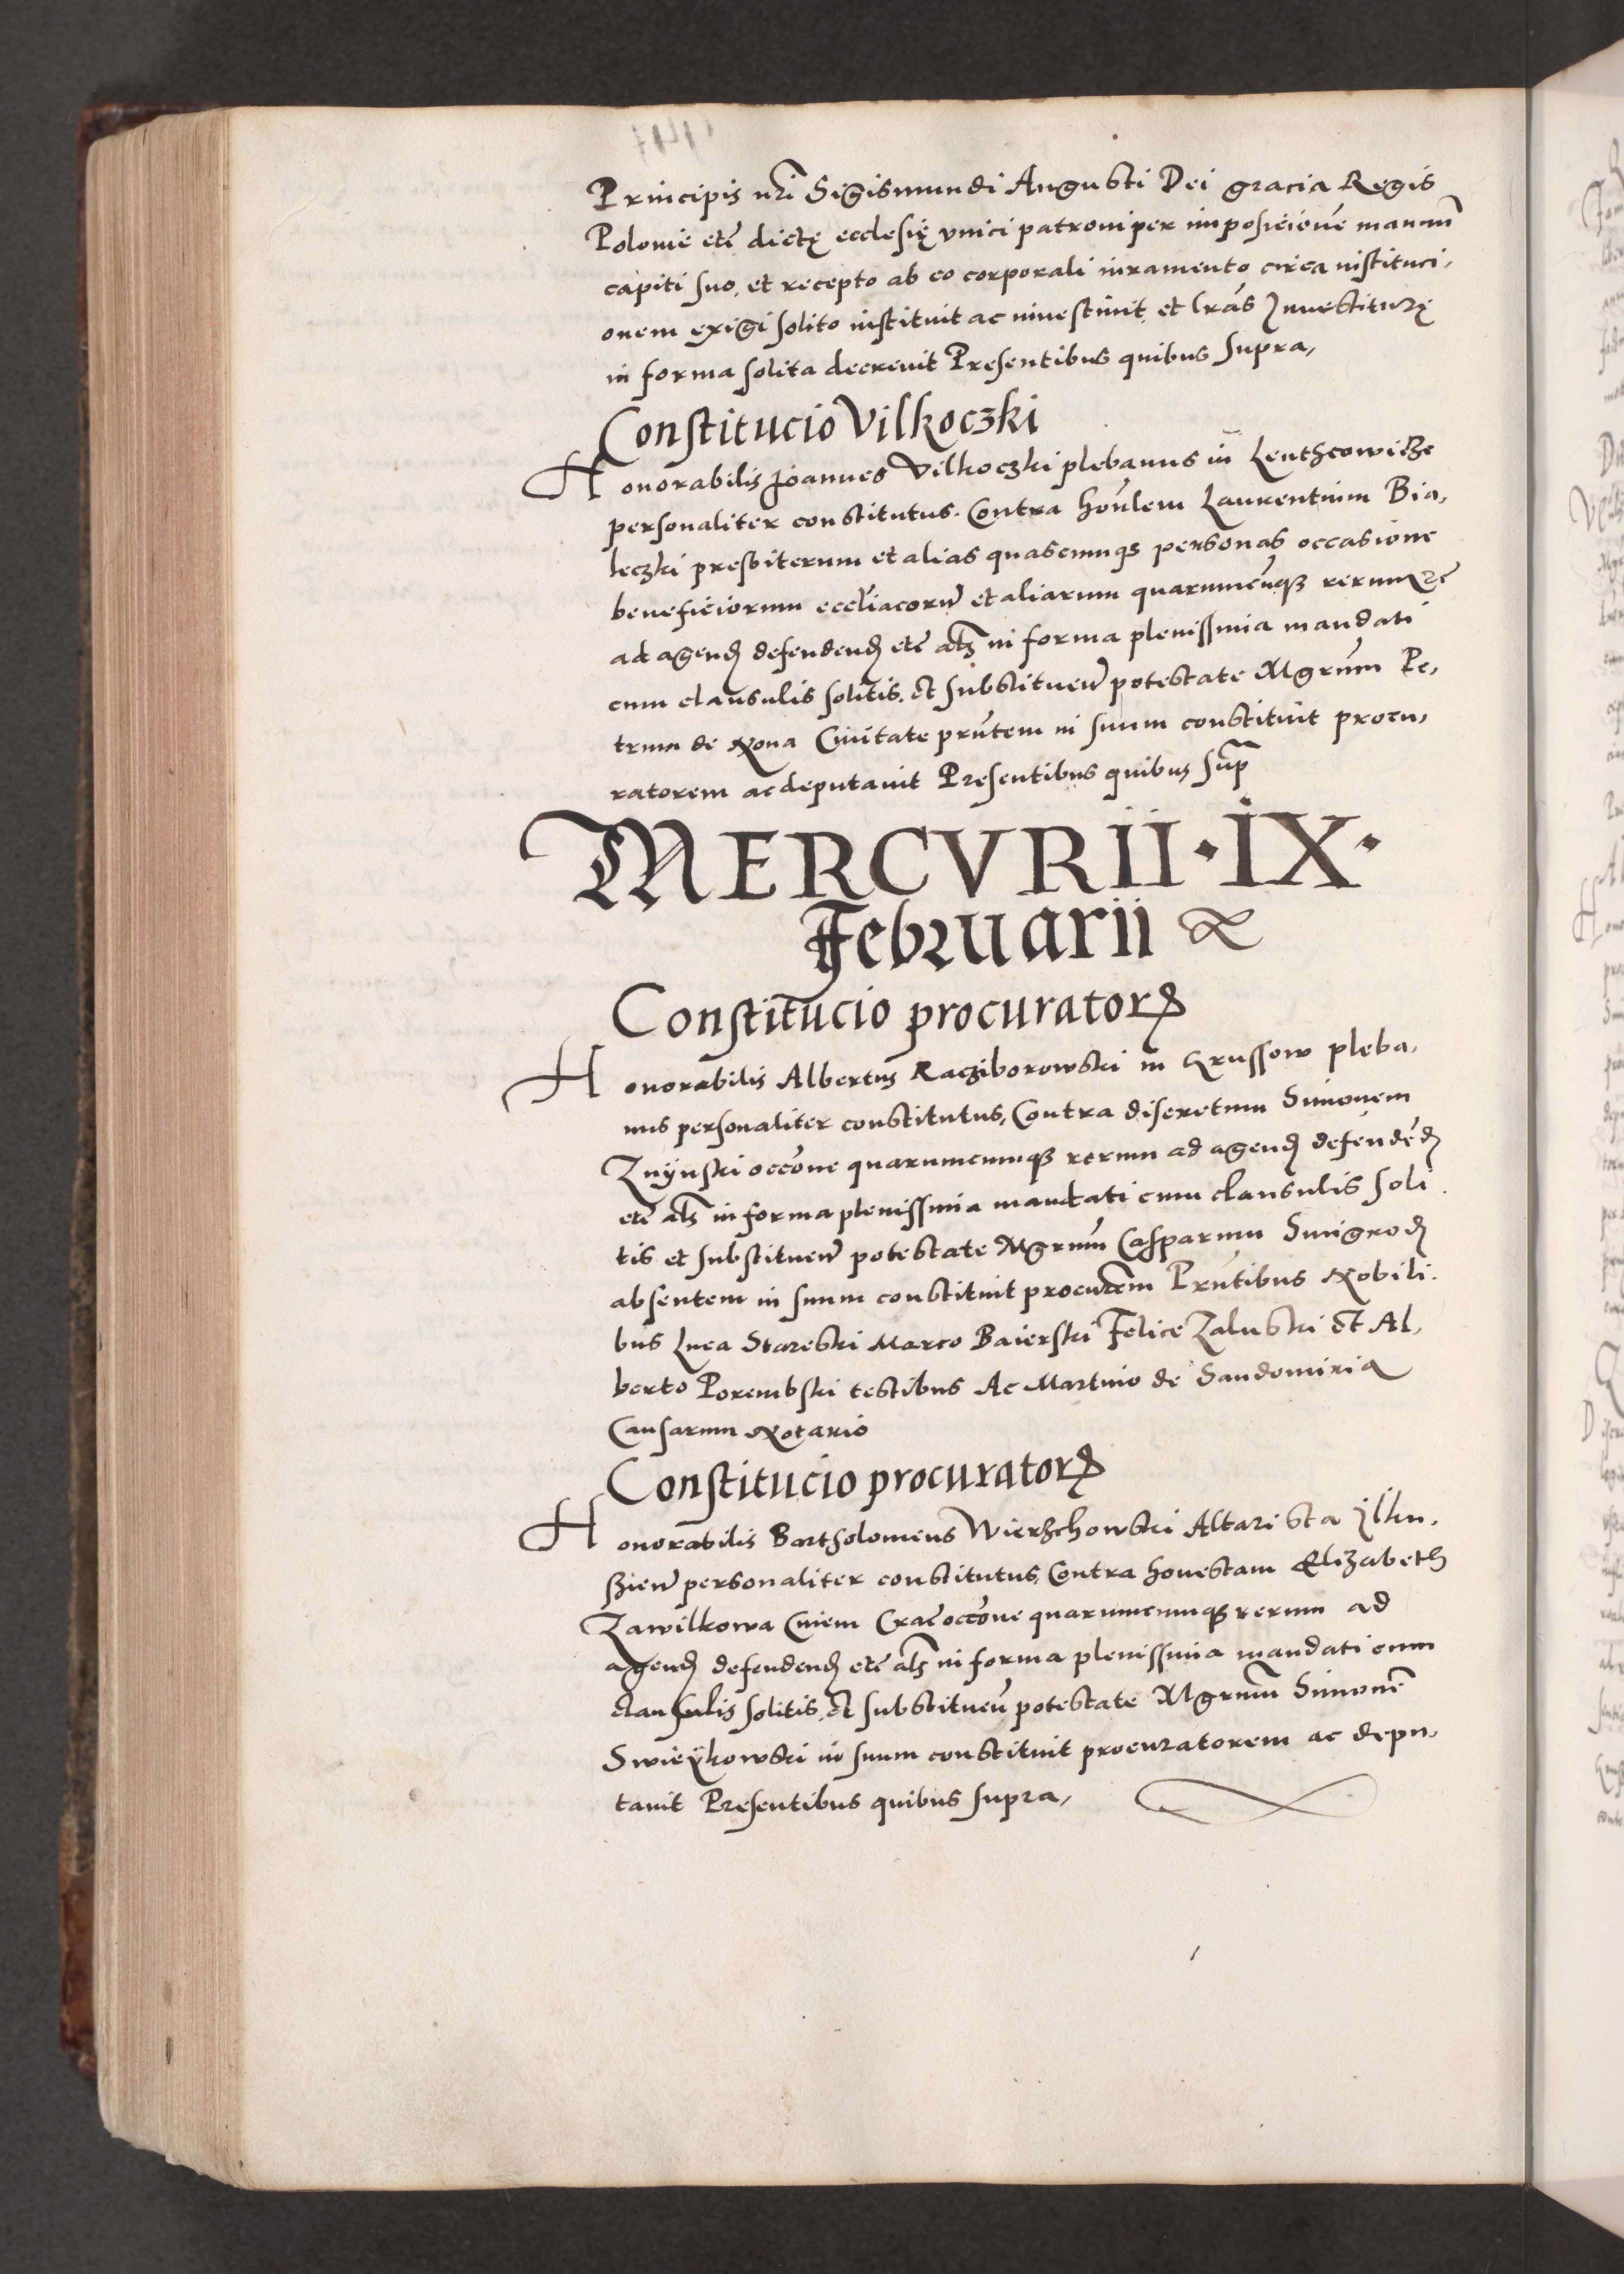 Principis nr̃i Sigismundi Augusti Dei gracia Regis
Polonie etc̃ dictę ecclesię vnici patroni per imposicionẽ manuũ
capiti suo, et recepto ab eo corporali iuramento circa instituci,
onem exigi solito instituit ac inuestiuit, et lr̃as Inuestiturę
in forma solita decreuit Presentibus quibus supra,
Constitucio Vilkoczki
Honorabilis Joannes Vilkoczki plebanus in Lenthcowicze
personaliter constitutus. Contra honr̃lem Laurentium Bia,
leczki presbiterum et alias quascunqz personas occasione
beneficiorum eccl̃iacorum̃ et aliarum quarumcũqz rerum etc̃
ad agend̨ defendend̨ etc̃ alz̃ in forma plenissima mandati
cum clausulis solitis. et substituen̄ potestate Mgrũm Pe,
trum de Noua Ciuitate prñtem in suum constituit procu,
ratorem ac deputauit Presentibus quibus sup̃
MERCVRII · IX ·
Februarii
Constitucio procurator̨
Honorabilis Albertus Racziborowski in Krussow pleba,
nus personaliter constitutus, Contra discretum Simonem
Znÿnski occõne quarumcumqz rerum ad agend̨ defendẽd̨
etc̃ alz̃ in forma plenissima mandati cum clausulis soli
tis et substituen̄ potestate Mgrũm Casparum Smigrod̨
absentem in suum constituit procur̃em Prñtibus Nobili.
bus Luca Stareski Marco Baierski Felice Zaluski et Al,
berto Porembski testibus Ac Martino de Sandomiria
Causarum Notario
Constitucio procurator̨
Honorabilis Bartholomeus Wierzchowski Altarista Ilku,
szien̄ personaliter constitutus, Contra honestam Elizabeth
Zawilkowa Ciuem Crac̃ occõne quarumcumqz rerum ad
agend̨ defendend̨ etc̃ alz̃ in forma plenissima mandati cum
clausulis solitis, et substituen̄ potestate Mgrũm Simonẽ
Swieÿkowski in suum constituit procuratorem ac depu,
tauit Presentibus quibus supra,